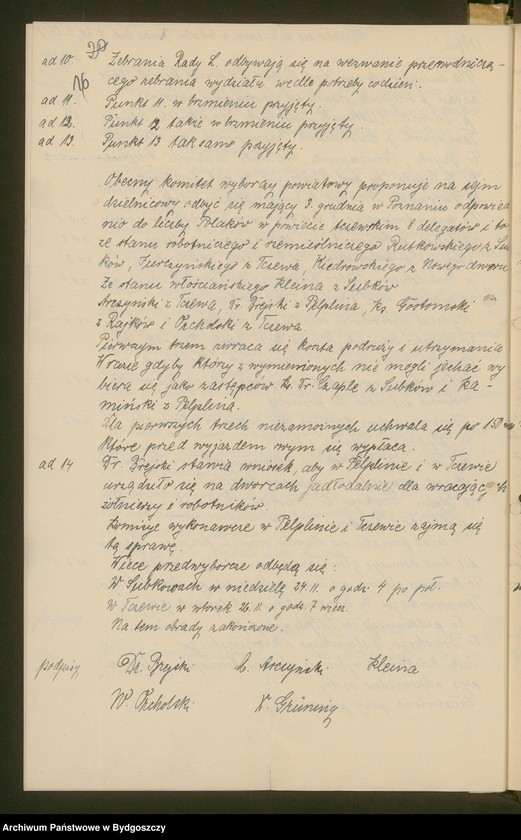 ad 10 Zebrania Rady L. odbywają się na wezwanie przewodniczą-
76 cego zebrania wydziału wedle potrzeby codzień.
ad 11. Punkt 11. w brzmieniu przyjęty.
ad 12. Punkt 12 także w brzmieniu przyjęty
ad 13. Punkt 13 tak samo przyjęty.
Obecny komitet wyborczy powiatowy proponuje na sejm
dzielnicowy odbyć się mający 3. grudnia w Poznaniu odpowied
nio do liczby Polaków w powiecie tczewskim 8 delegatów i to
ze stanu robotniczego i rzemieślniczego Rutkowskiego z Sub
ków, Jurczyńskiego z Tczewa, Kiedrowskiego z Nowego dworu
Ze stanu włościańskiego Kleina z Subków
Arczyński z Tczewa, Dr. Brejski z Pelplina, Ks. Gostomski
z Rajków i Pacholski z Tczewa.
Pierwszym trzem zwraca się koszta podróży i utrzymania
W razie gdyby który z wymienionych nie mogli jechać wy
biera się jako zastępców ks. Dr. Czaple z Subków i Ka-
miński z Pelplina.
Dla pierwszych trzech niezamożnych uchwala się po 150
które przed wyjazdem wym się wypłaca.
ad 14 Dr. Brejski stawia wniosek, aby w Pelplinie i w Tczewie
urządziło się na dworcach jadłodalnie dla wracających
żołnierzy i robotników.
Komisye wykonawcze w Pelplinie i Tczewie zajmą się
tą sprawę.
Wiece przedwyborcze odbędą się:
W Subkowach w niedzielę 24.11. o godz. 4 po poł.
W Tczewie w wtorek 26.11 o godz. 7 wiecz.
Na tem obrady zakończone.
podpisy Dr. Brejski A. Arczyński Kleina
W. Pacholski X. Grüning
Archiwum Państwowe w Bydgoszczy